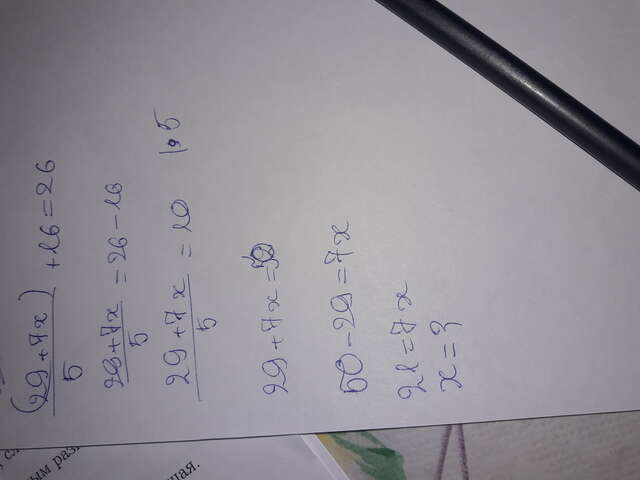 (29+7x)/5 + 16 = 26
29+7x/5 = 26 - 16
29+7x/5 = 10 | • 5
29+7x=50
50-29=7x
21=7x
x=3
ным раз
ая.